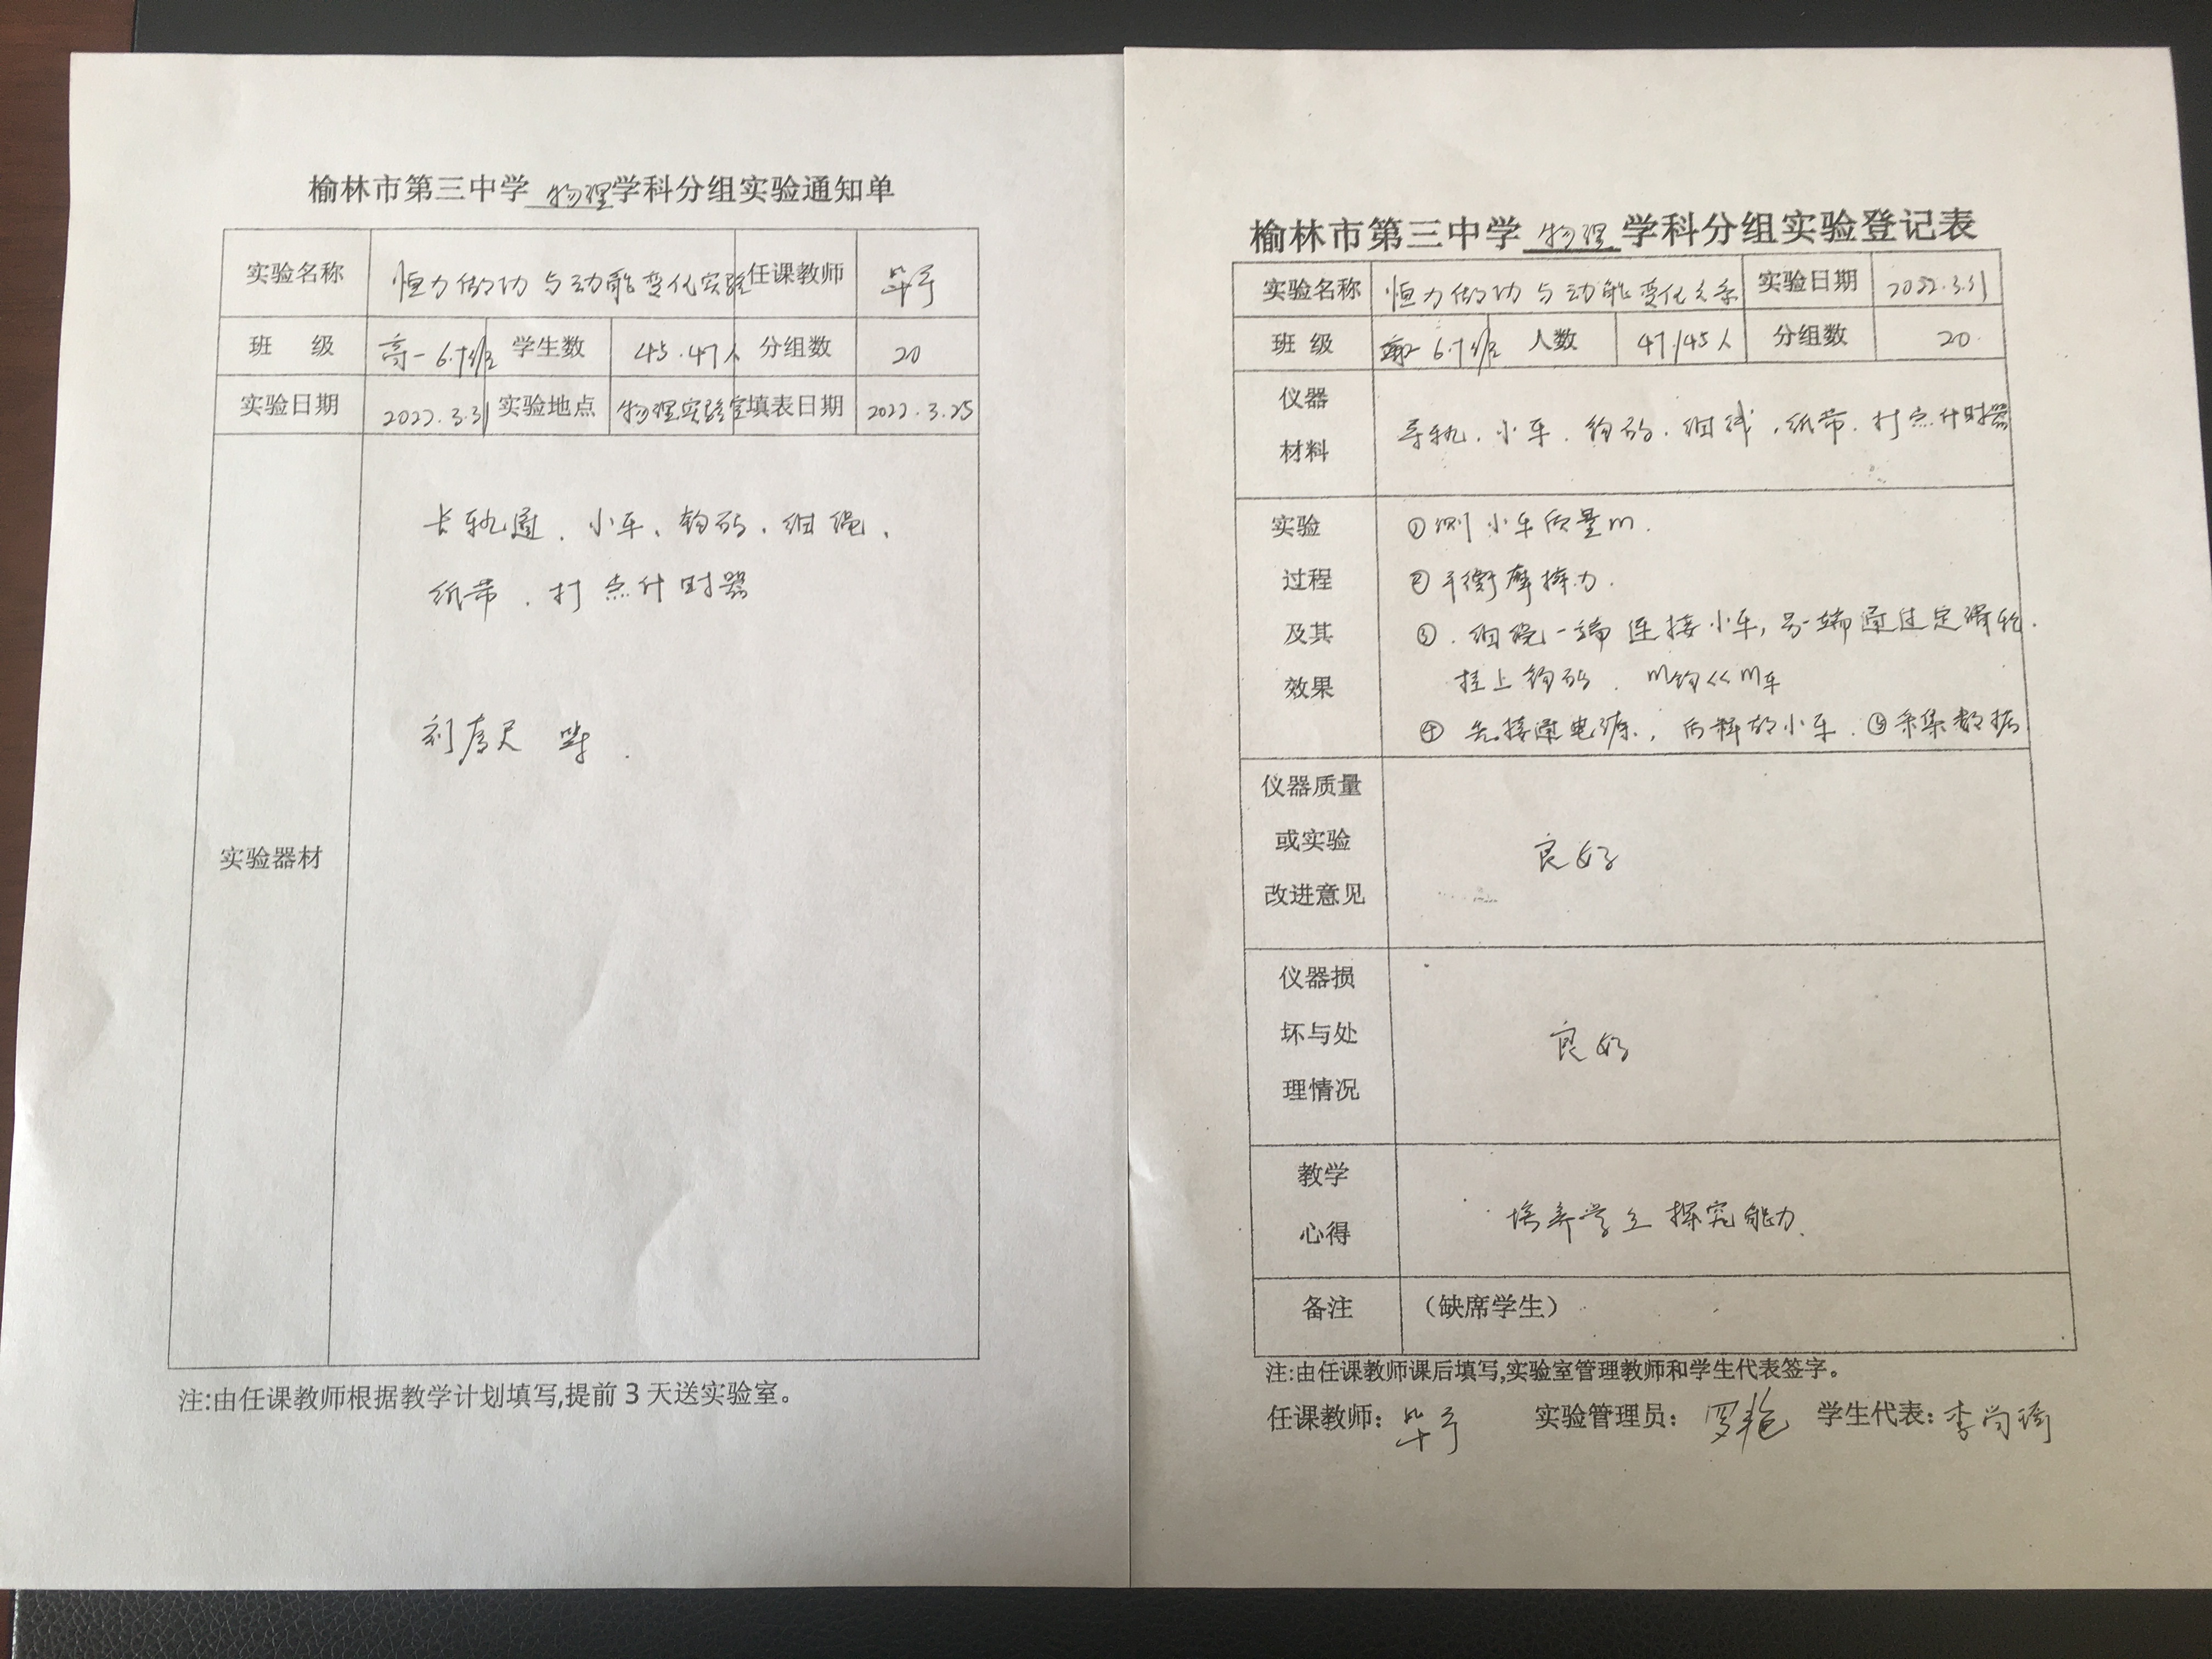 榆林市第三中学 物理 学科分组实验通知单
实验名称 恒力做功与动能变化实验 任课教师 毕宁
班 级 高一6.7班 学生数 45.47人 分组数 20
实验日期 2022.3.31 实验地点 物理实验室 填表日期 2022.3.25
实验器材
长轨道、小车、钩码、细绳、
纸带、打点计时器
刻度尺 等.
注:由任课教师根据教学计划填写,提前 3 天送实验室。
榆林市第三中学 物理 学科分组实验登记表
实验名称 恒力做功与动能变化关系 实验日期 2022.3.31
班 级 6.7班 人数 47/45人 分组数 20
仪器
材料
导轨、小车、钩码、细线、纸带、打点计时器
实验
过程
及其
效果
①测小车质量m.
②平衡摩擦力.
③.细绳一端连接小车,另一端通过定滑轮.
挂上钩码. m钩<<m车
④先接通电源,后释放小车.⑤采集数据.
仪器质量
或实验
改进意见
良好
仪器损
坏与处
理情况
良好
教学
心得
培养学生探究能力.
备注 （缺席学生）
注:由任课教师课后填写,实验室管理教师和学生代表签字。
任课教师: 毕宁 实验管理员: 罗艳 学生代表: 李尚琦